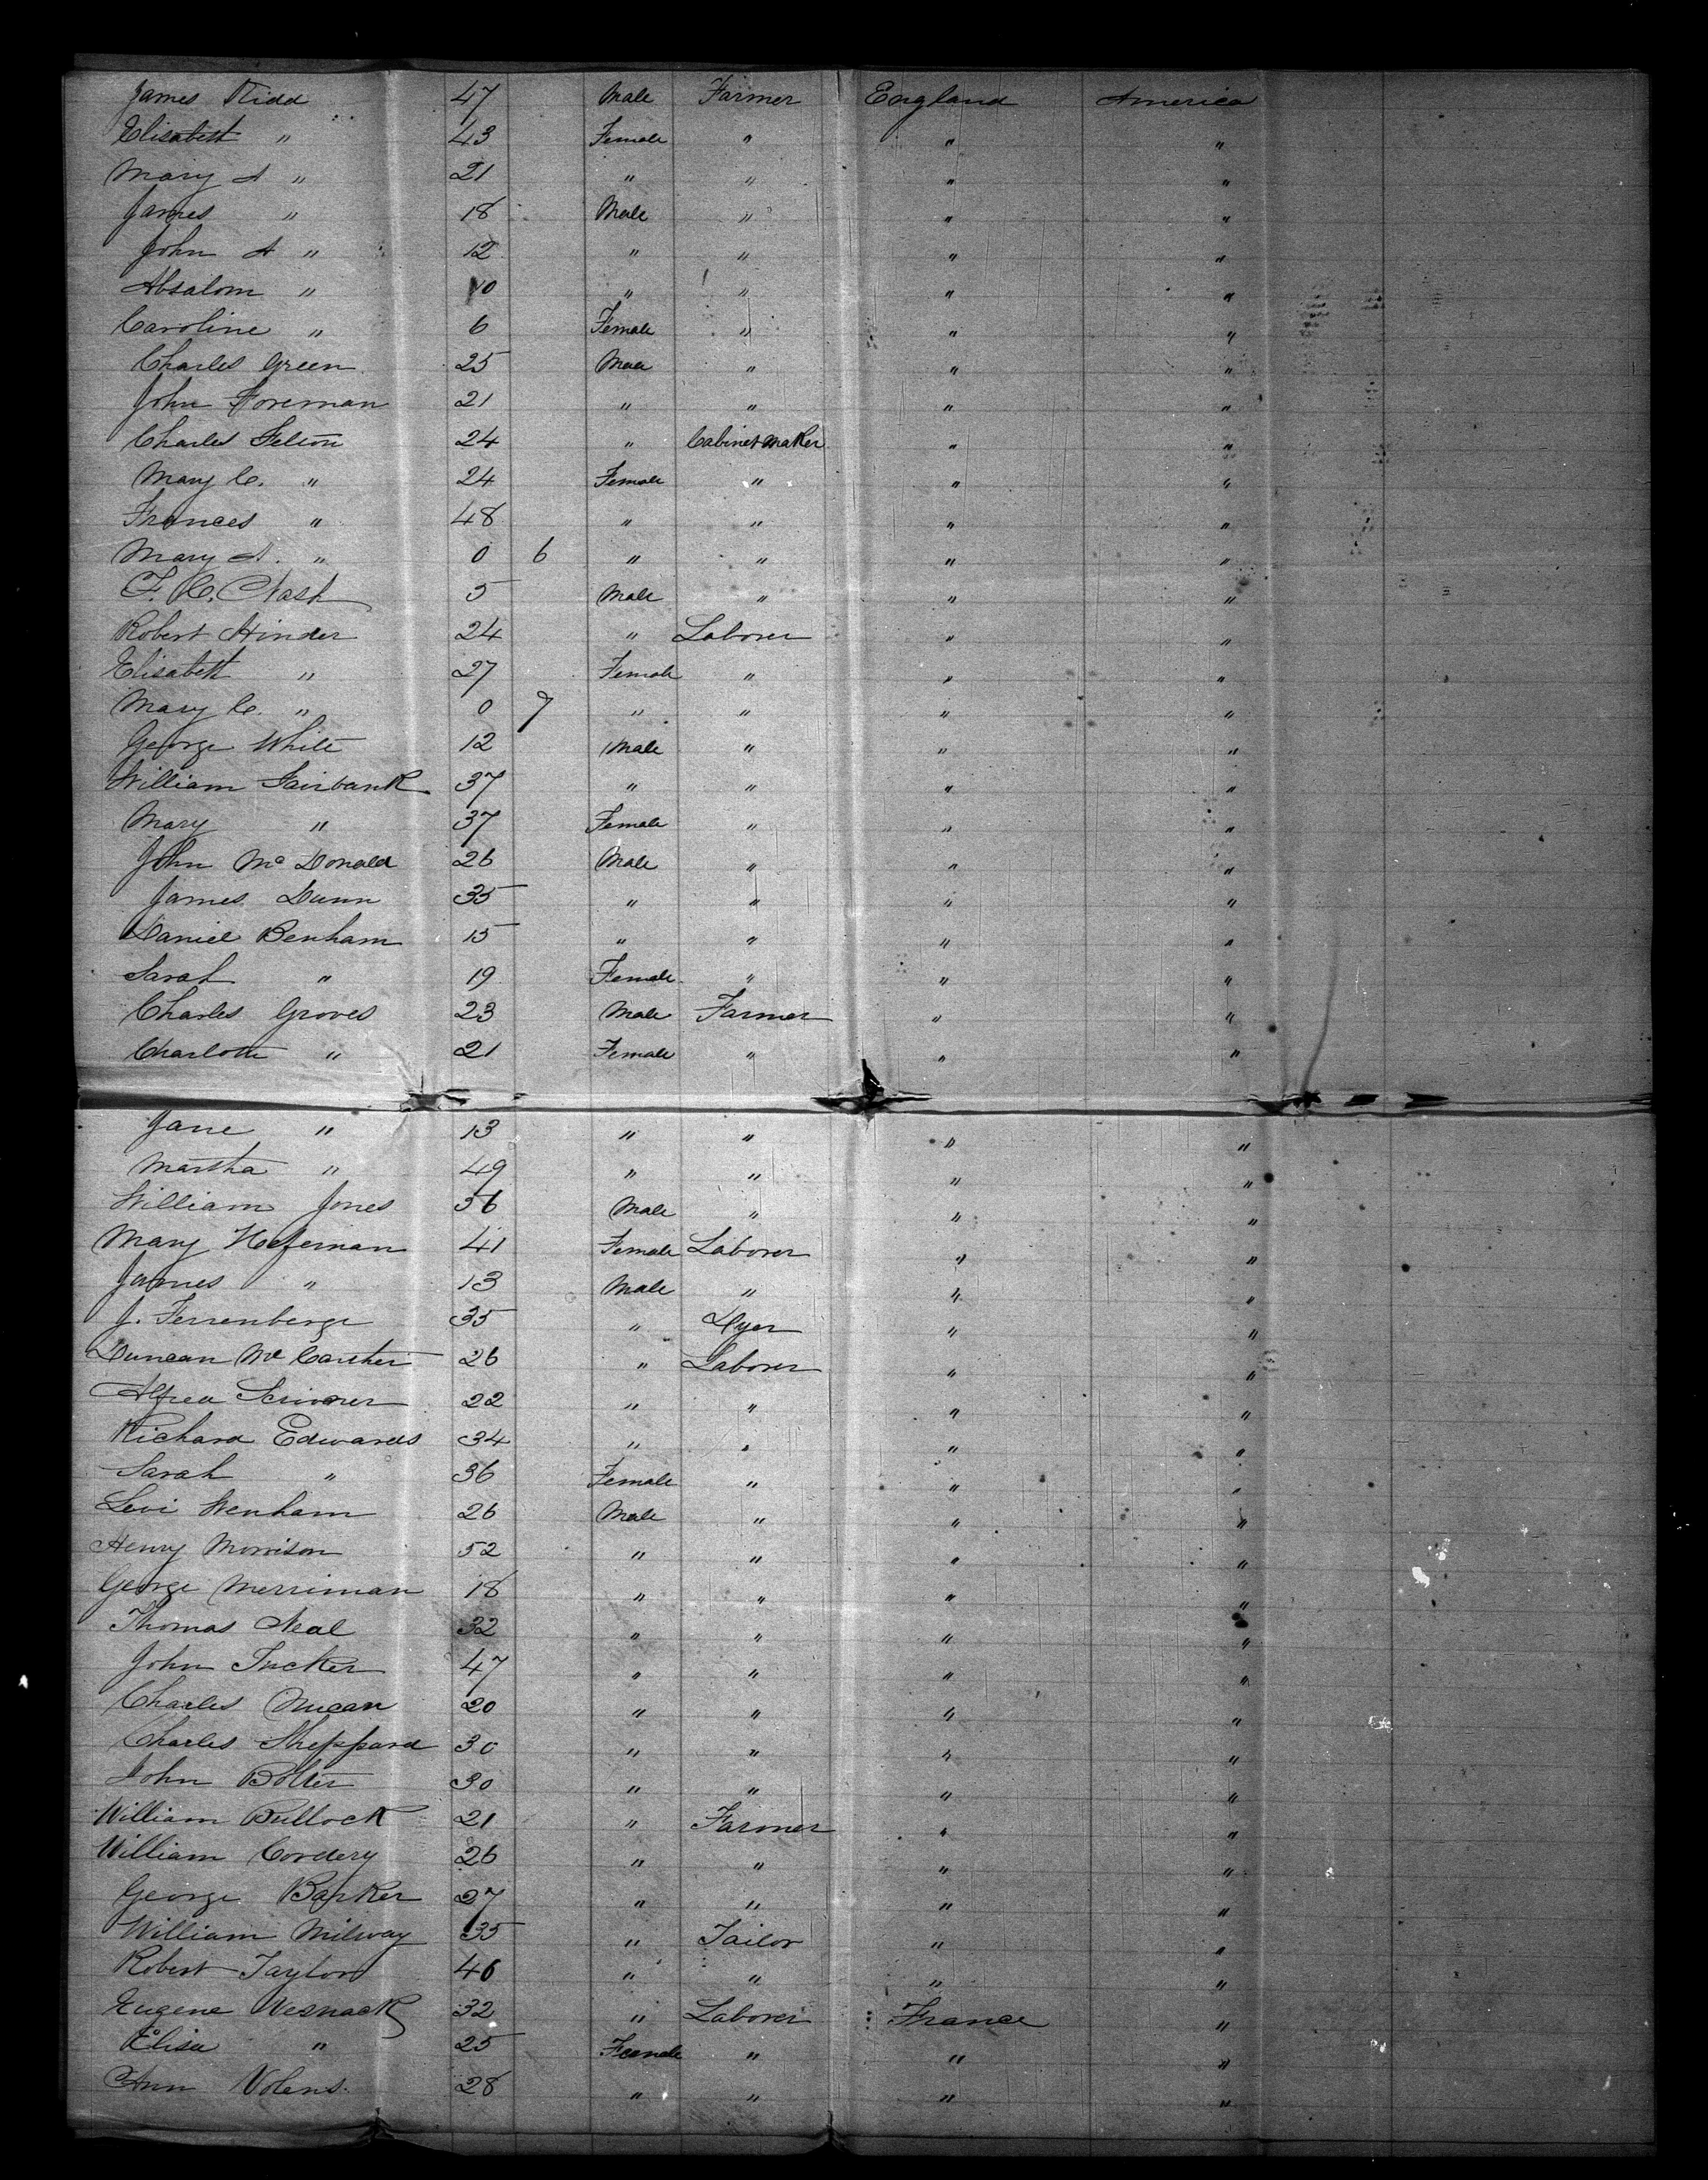 James Kidd 47 Male Farmer England America
Elisabeth " 43 Female " " "
Mary A " 21 " " " "
James " 18 Male " " "
John A " 12 " " " "
Absalom " 10 " " " "
Caroline " 6 Female " " "
Charles Green 25 Male " " "
John Foreman 21 " " " "
Charles Felton 24 " Cabinet maker " "
Mary C. " 24 Female " " "
Frances " 48 " " " "
Mary A. " 0 6 " " " "
F. C. Nash 5 Male " " "
Robert Hinder 24 " Laborer " "
Elisabeth " 27 Female " " "
Mary C. " 0 7 " " " "
George White 12 Male " " "
William Fairbank 37 " " " "
Mary " 37 Female " " "
John Mc Donald 26 Male " " "
James Dunn 35 " " " "
Daniel Benham 15 " " " "
Sarah " 19 Female " " "
Charles Groves 23 Male Farmer " "
Charlotte " 21 Female " " "
Jane " 13 " " " "
Martha " 49 " " " "
William Jones 36 Male " " "
Mary Hefernan 41 Female Laborer " "
James " 13 Male " " "
J. Ferrenberge 35 " Dyer " "
Duncan Mc 26 " Laborer " "
Alfred Scrivener 22 " " " "
Richard Edwards 34 " " " "
Sarah " 36 Female " " "
Levi Wenham 26 Male " " "
Henry Morrison 52 " " " "
George Merriman 18 " " " "
Thomas Neal 32 " " " "
John Tucker 47 " " " "
Charles 20 " " " "
Charles Sheppard 30 " " " "
John Bolter 30 " " " "
William Bullock 21 " Farmer " "
William Cordery 26 " " " "
George Barker 27 " " " "
William Milway 35 " Tailor " "
Robert Taylor 46 " " " "
Eugene Wesnack 32 " Laborer France "
Elisa " 25 Female " " "
Ann Volens. 28 " " " "